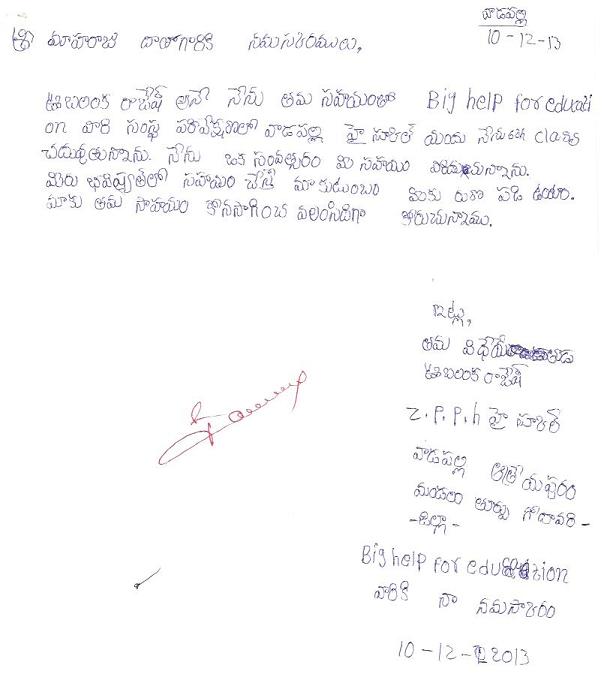 వాడపల్లి
10-12-13
శ్రీ మాహరాజ దాతగారికి నమసకరములు,
ఊబలంక రాజేష్ అనే నేను తమ సహయంతో Big help for educati
on వారి సంస్థ పరివేక్షణలో వాడపల్లి హై సూకల్ యందు నేను 6th class
చదువుతున్నాను. నేను ఒక సంవత్సరం మీ సహయం
మీరు భవిష్యతలో సహయం చేస్తే మా కుటుంబం మీకు రుణ పడి ఉంటాం.
మాకు తమ సాహయం కొనసాగించ వలసిందిగా కోరుచున్నాము.
ఇట్లు,
తమ విధేయ
ఊబలంక రాజేష్
Z.P.P.h హై సూకల్
వాడపల్లి ఆత్రేయపురం
మండలం తూర్పు గోదావరి -
-జిల్లా-
Big help for education
వారికి నా నమసాకరం
10-12-2013